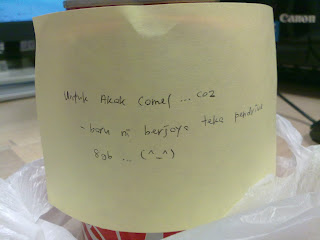 Canon
Untuk Akak Comel ... coz
- baru ni berjaya teka pendrive
8gb ... (^_^)